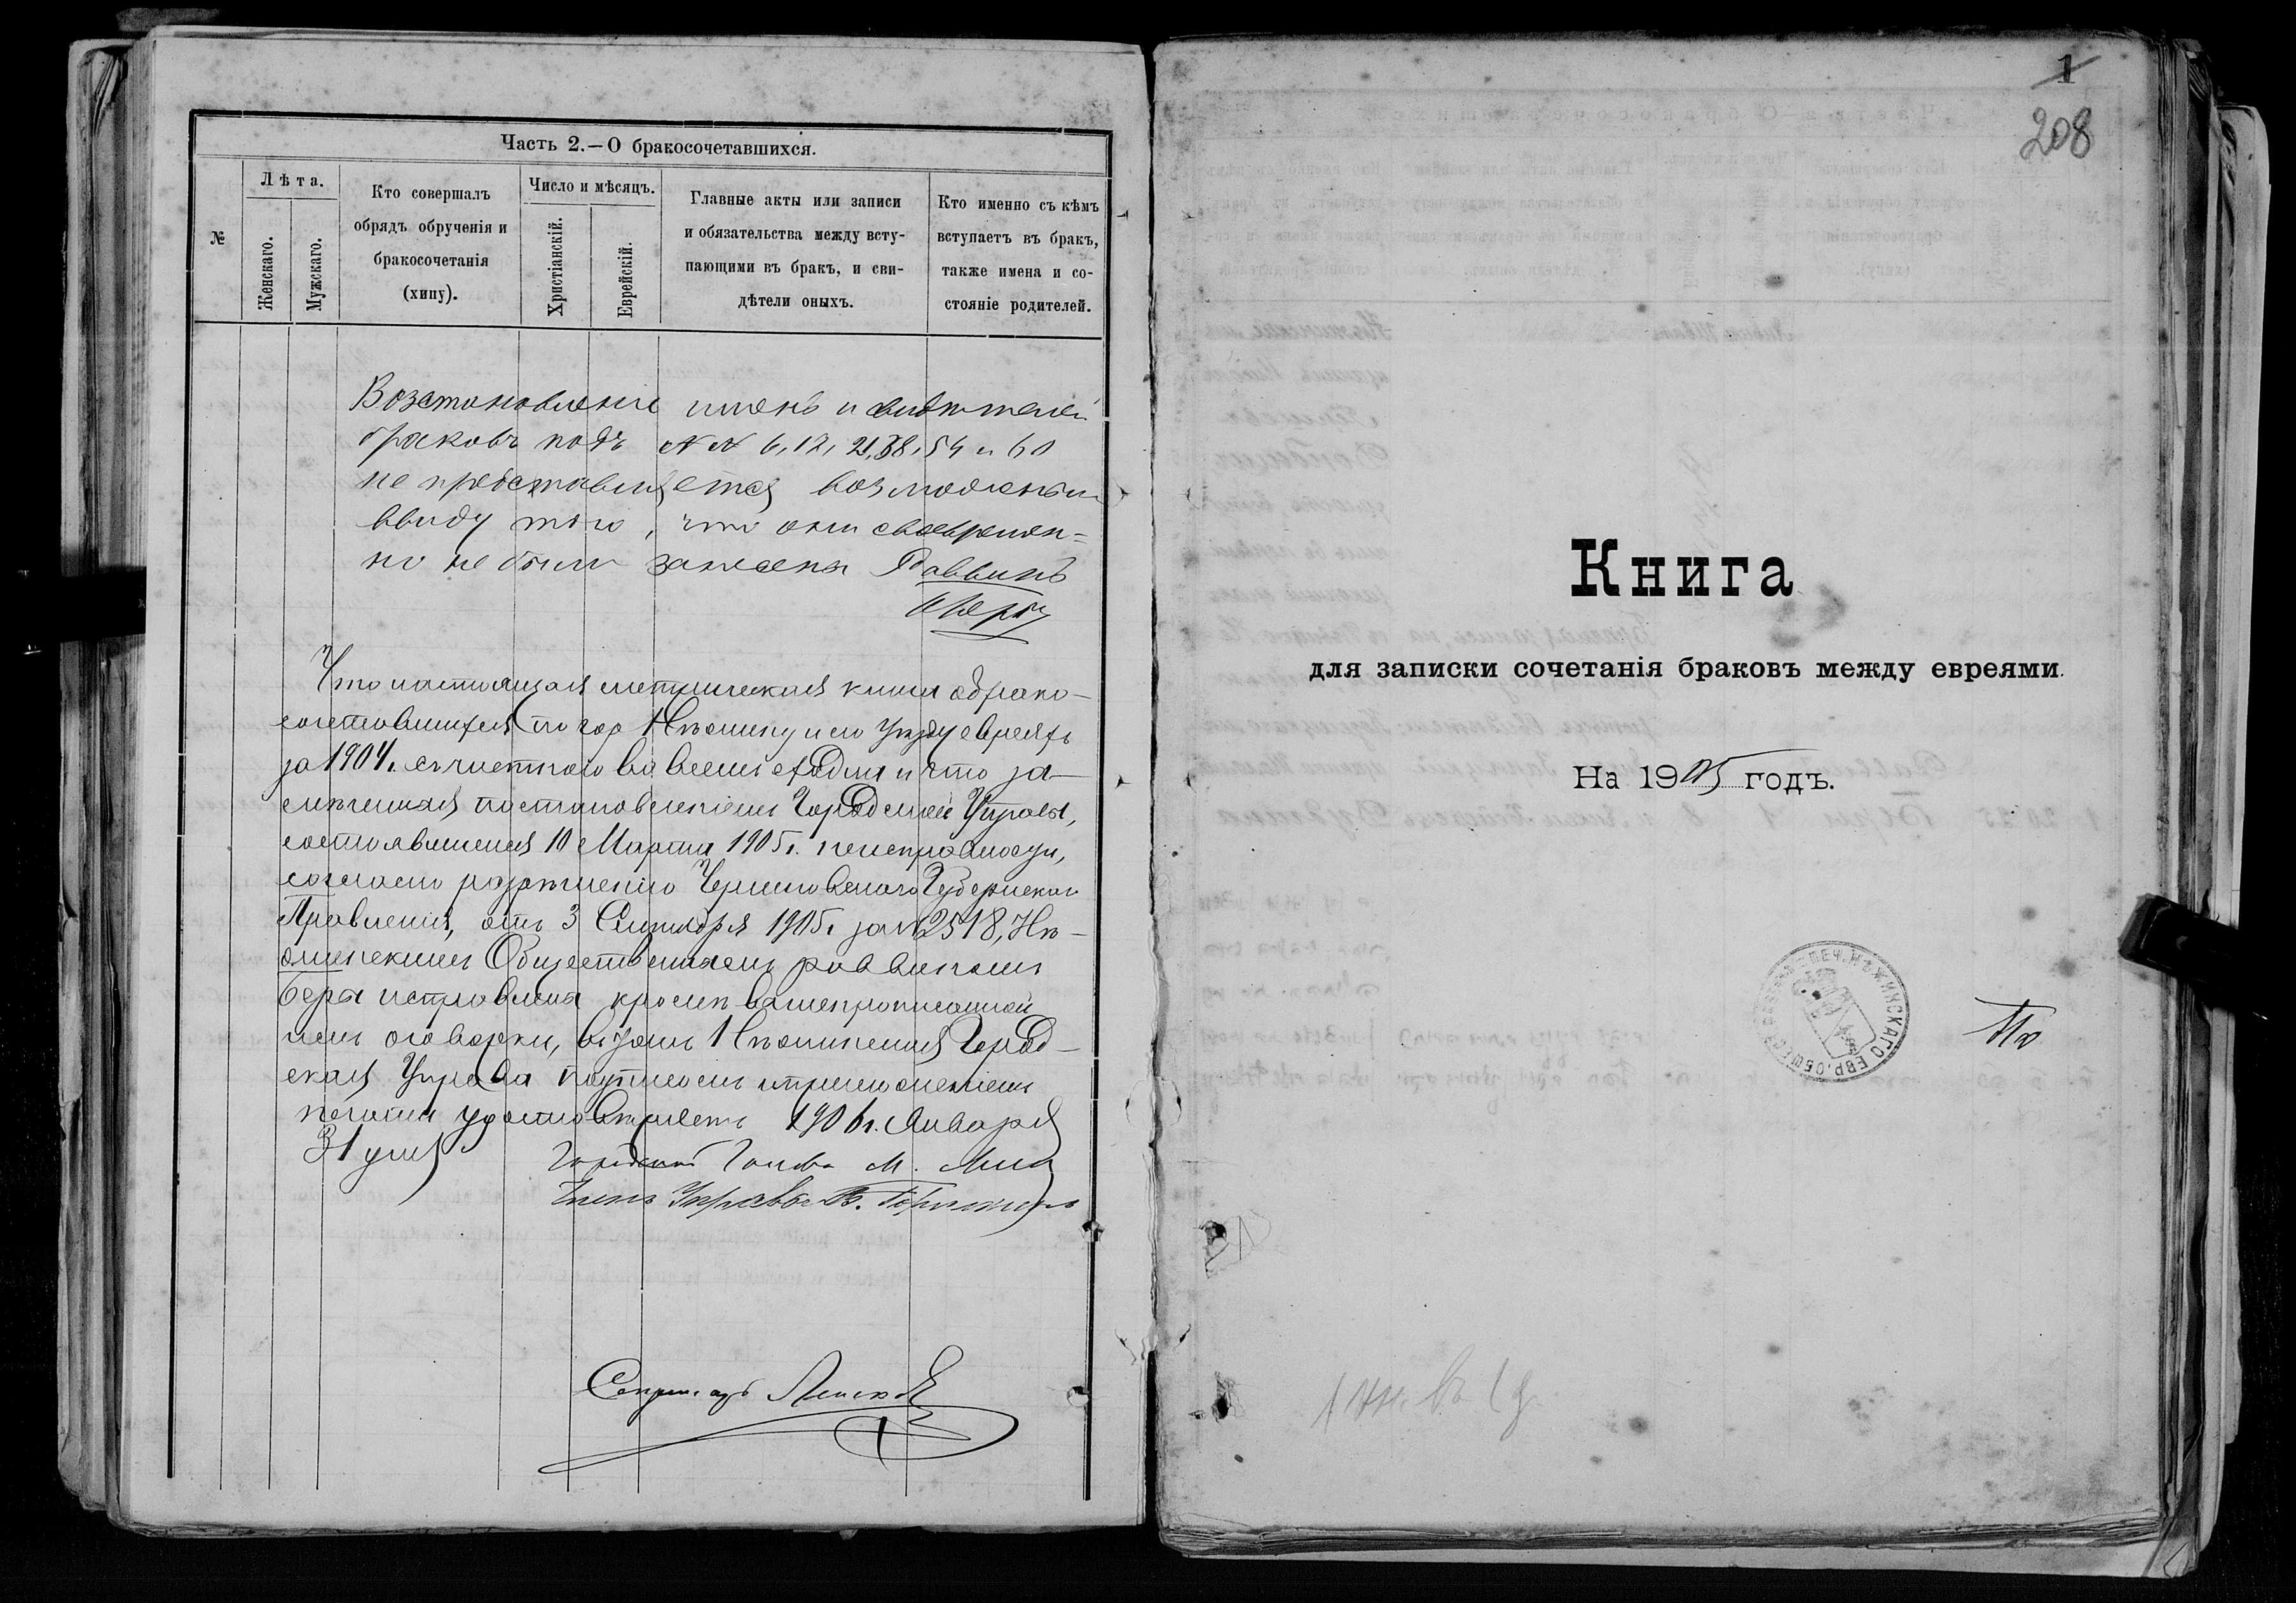 Часть 2.—О бракосочетавшихся.
№
Лѣта.
Женскаго.
Мужскаго.
Кто совершалъ
обрядъ обрученія и
бракосочетанія
(хипу).
Число и мѣсяцъ.
Христіанскій.
Еврейскій.
Главные акты или записи
и обязательства между всту-
пающими въ бракъ, и сви-
дѣтели оныхъ.
Кто именно съ кѣмъ
вступаетъ въ бракъ,
также имена и со-
стояніе родителей.
Возстановленіе именъ и свидѣтелей
браковъ подъ №№ 6, 12, 21, 38, 54 и 60
не представляется возможнымъ
ввиду того, что они своевремен=
но не были записаны Раввинъ
Что настоящая метрическая книга о брако-
сочетавшихся по гор Нѣжину и его уѣзду евреяхъ
за 1904 г. съ чистаго во всемъ сходна и что за-
мѣченныя постановленіемъ Городской Управы,
состоявшемся 10 Марта 1905 г. неисправности,
согласно разъясненію Черниговскаго Губернскаго
Правленія, отъ 3 Сентября 1905 г. за № 2518, Нѣ-
жинскимъ Общественнымъ раввиномъ
Бера исправлены кромѣ вышепрописанной
имъ оговорки, въ томъ Нѣжинская Город-
ская Управа подписомъ и приложеніемъ
печати удостовѣряетъ 1906 г. Января
31 дня
Городской Голова М.
Членъ Управы
Секретарь
1
208
Книга
для записки сочетанія браковъ между евреями.
На 1905 годъ.
НѢЖИНСКАГО ЕВР. ОБЩЕСТ.